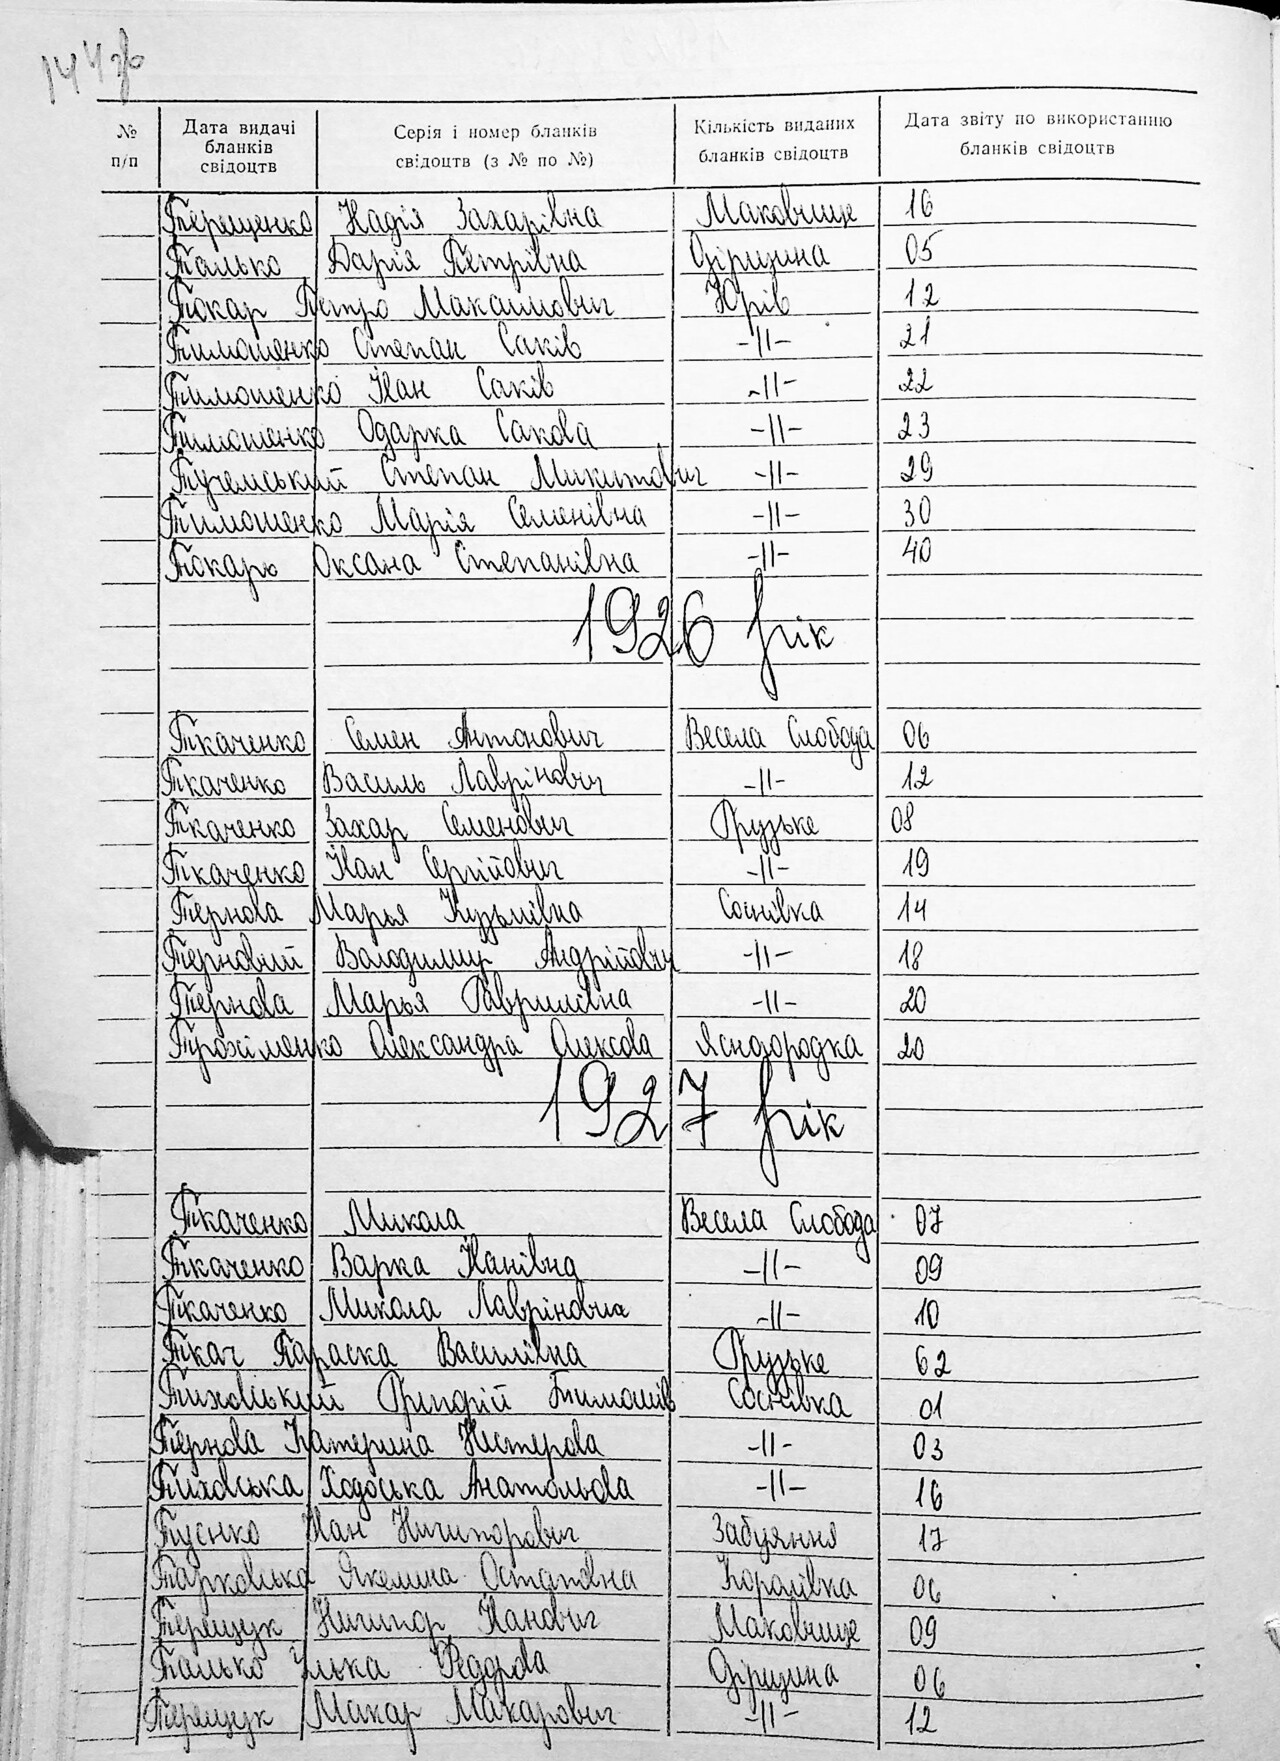 144 зв
№ п/п | Дата видачі бланків свідоцтв | Серія і номер бланків свідоцтв (з № по №) | Кількість виданих бланків свідоцтв | Дата звіту по використанню бланків свідоцтв
Терещенко Надія Захарівна Маковище 16
Талько Дарія Петрівна Діришна 05
Токар Петро Максимович Юрів 12
Тимошенко Степан Саків -//- 21
Тимошенко Іван Саків -//- 22
Тимошенко Одарка Сакова -//- 23
Тучемський Степан Микитович -//- 29
Тимошенко Марія Семенівна -//- 30
Токарь Оксана Степанівна -//- 40
1926 рік
Ткаченко Семен Антонович Весела Слобода 06
Ткаченко Василь Лаврінович -//- 12
Ткаченко Захар Семенович Грузьке 08
Ткаченко Іван Сергійович -//- 19
Тернова Марья Кузьмівна Соснівка 14
Терновий Володимир Андрійович -//- 18
Тернова Марья Гаврилівна -//- 20
Трохіменко Олександра Олексова Ясногородка 20
1927 рік
Ткаченко Микола Весела Слобода 07
Ткаченко Варка Іванівна -//- 09
Ткаченко Микола Лаврінович -//- 10
Ткач Параска Василівна Грузьке 62
Тиховський Григорій Тимошів Соснівка 01
Тернова Катерина Нестерова -//- 03
Тиховська Ходоська Анатольова -//- 16
Іван Ничипорович Забуяння 17
Тарковська Якелина Остапівна Королівка 06
Терещук Ничипор Іванович Маковище 09
Талько Улька Федорова Діришна 06
Терещук Макар Макарович -//- 12